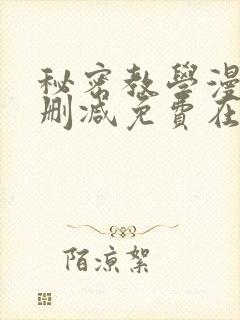 秘密教學漫
刪減免費在
陌涼絮